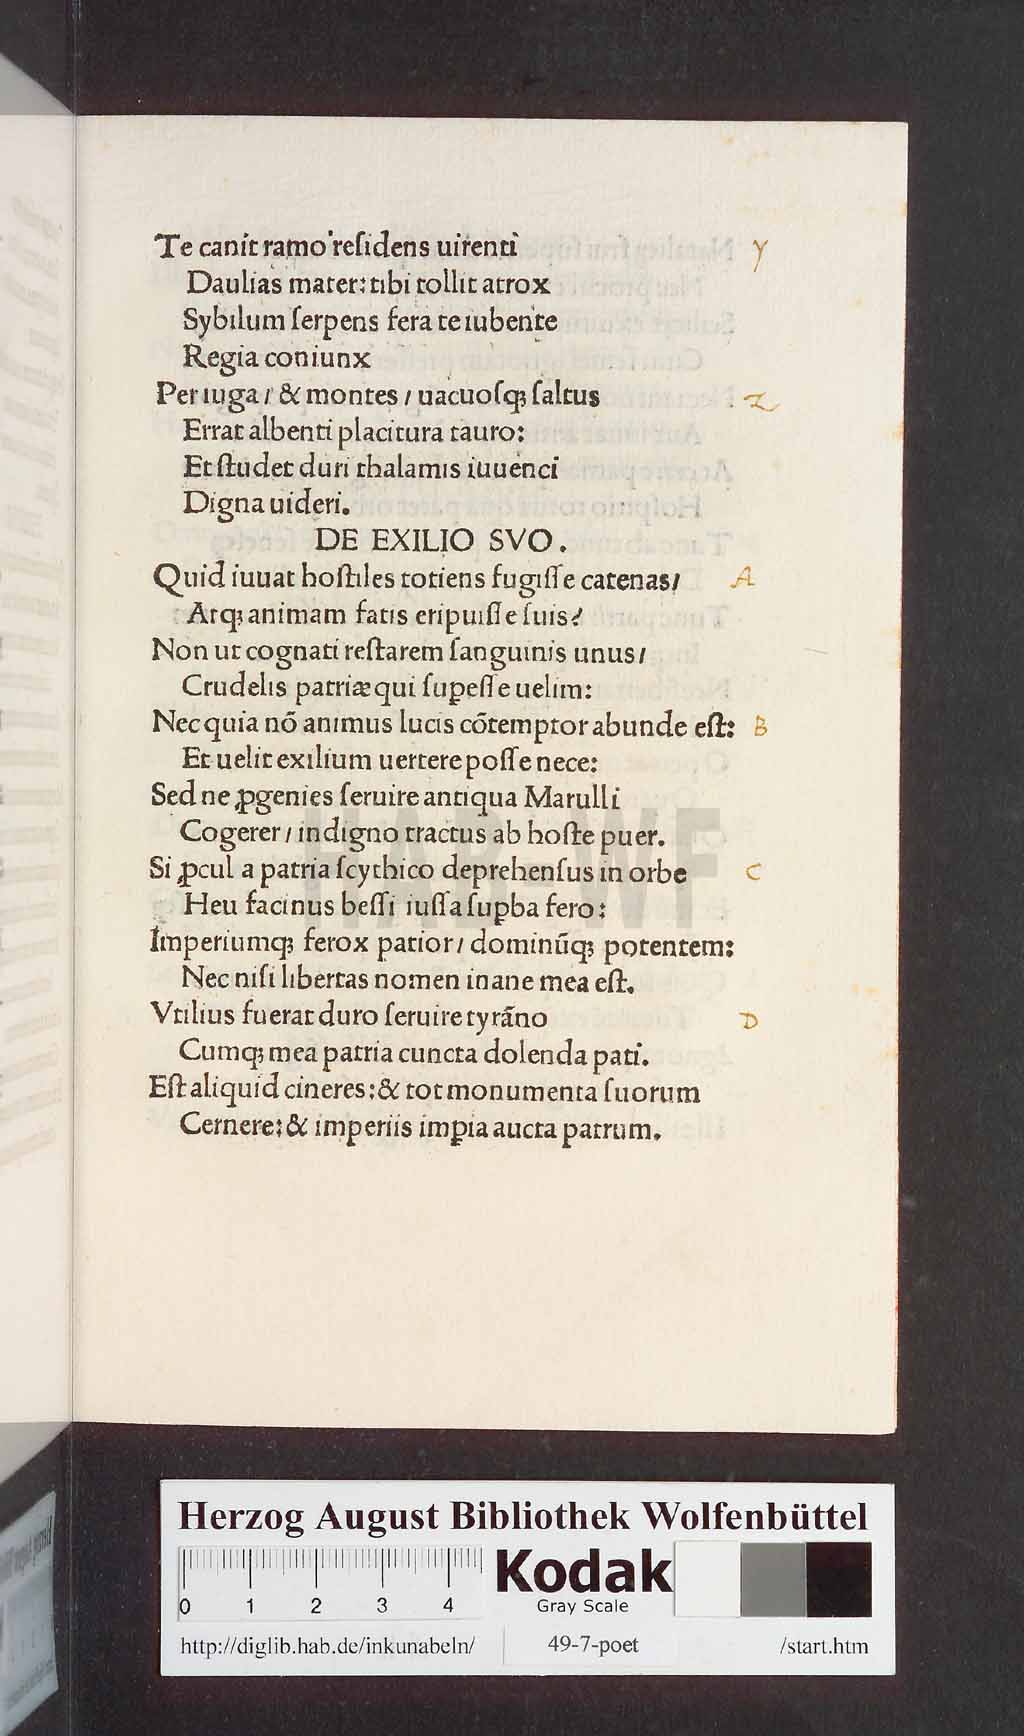 Te canit ramo residens uirenti
Y
Daulias mater: tibi tollit atrox
Sybilum ſerpens fera te iubente
Regia coniunx
Per iuga / & montes / uacuoſqꝫ ſaltus
Z
Errat albenti placitura tauro:
Et ſtudet duri thalamis iuuenci
Digna uideri.
DE EXILIO SVO.
Quid iuuat hoſtiles totiens fugiſſe catenas/
A
Atqꝫ animam fatis eripuiſſe ſuis?
Non ut cognati reſtarem ſanguinis unus/
Crudelis patriæ qui ſupeſſe uelim:
Nec quia nõ animus lucis cõtemptor abunde eſt:
B
Et uelit exilium uertere poſſe nece:
Sed ne ꝓgenies ſeruire antiqua Marulli
Cogerer / indigno tractus ab hoſte puer.
Si ꝓcul a patria ſcythico deprehenſus in orbe
C
Heu facinus beſſi iuſſa ſupba fero:
Imperiumqꝫ ferox patior / dominũqꝫ potentem:
Nec niſi libertas nomen inane mea eſt.
Vtilius fuerat duro ſeruire tyrãno
D
Cumqꝫ mea patria cuncta dolenda pati.
Eſt aliquid cineres: & tot monumenta ſuorum
Cernere: & imperiis impia aucta patrum.
HAB-WF
Herzog August Bibliothek Wolfenbüttel
0 1 2 3 4
Kodak
Gray Scale
http://diglib.hab.de/inkunabeln/ 49-7-poet /start.htm